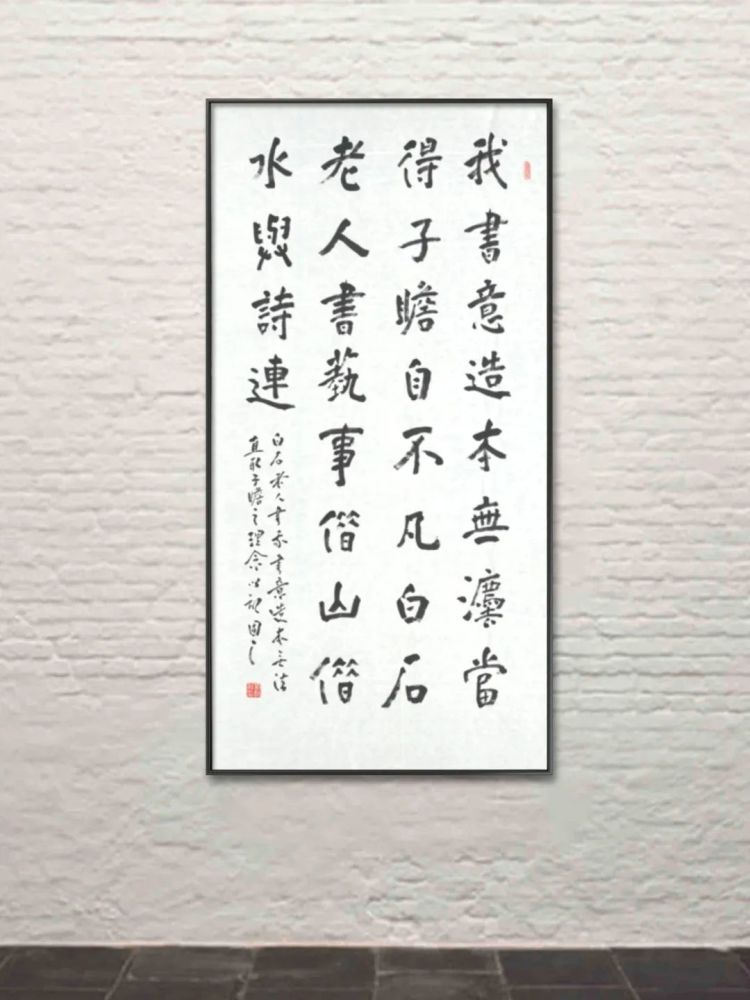 我書意造本無灋當
得子瞻自不凡白石
老人書蓺事偕山偕
水與詩連
白石老人書我書意造本无法
直取子瞻之理念